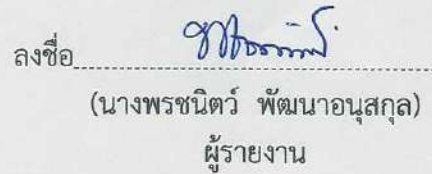 ลงชื่อ
(นางพรชนิตว์ พัฒนาอนุสกุล)
ผู้รายงาน